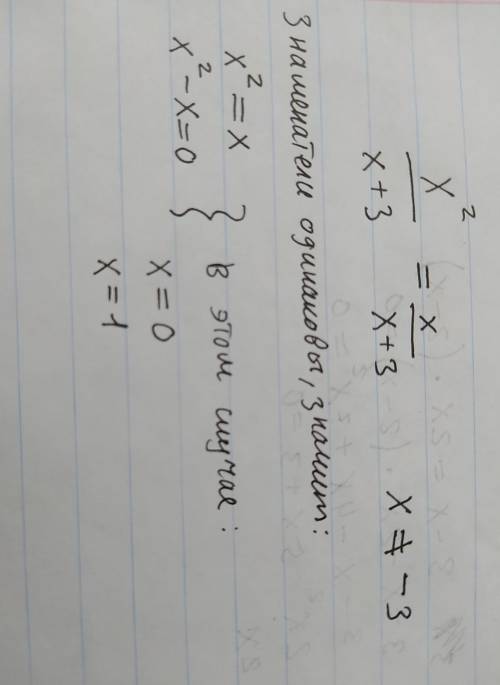 x²/x+3 = x/x+3 x ≠ -3
Знаменатели одинаковы, значит:
x² = x } в этом случае:
x² - x = 0 } x = 0
x = 1